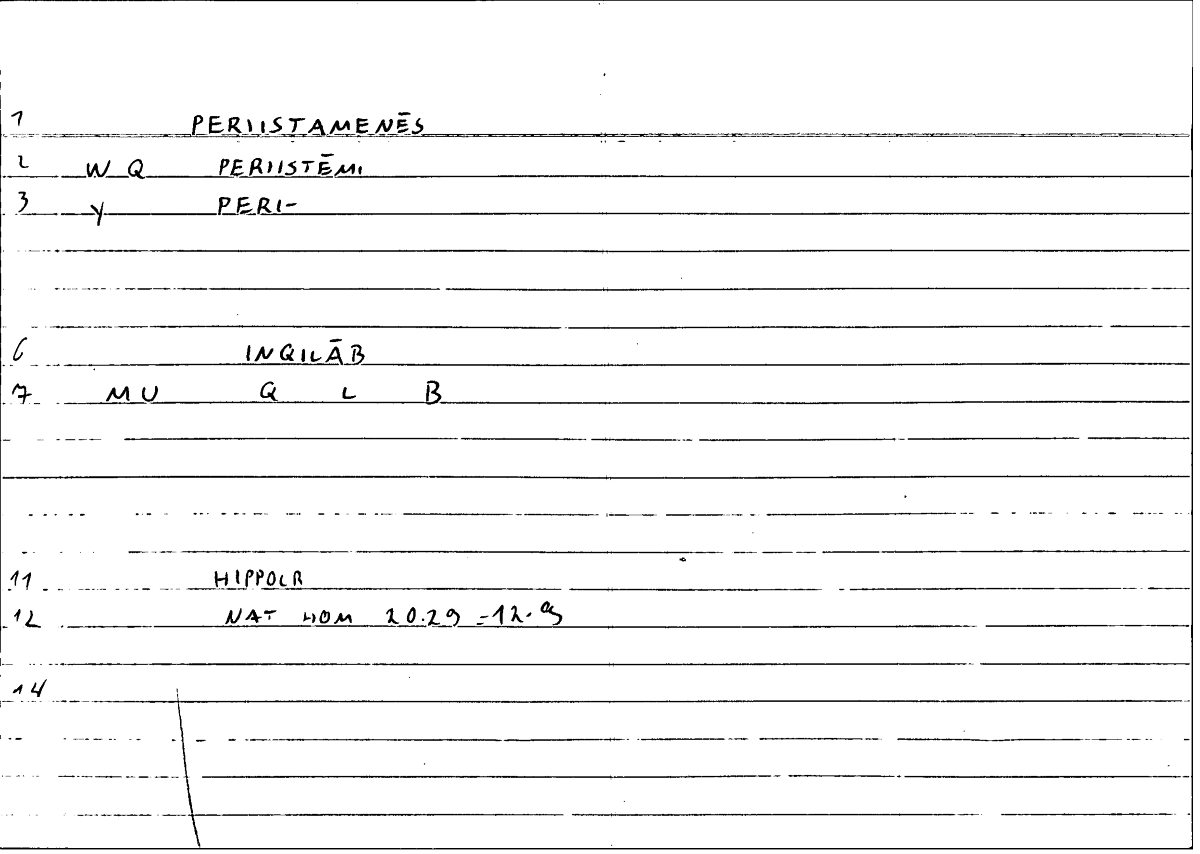 1 PERIISTAMENĒS
2 W Q PERIISTĒMI
3 Y PERI-
6 INQILĀB
7 MU Q L B
11 HIPPOCR
12 NAT HOM 20.29 = 12.9
14